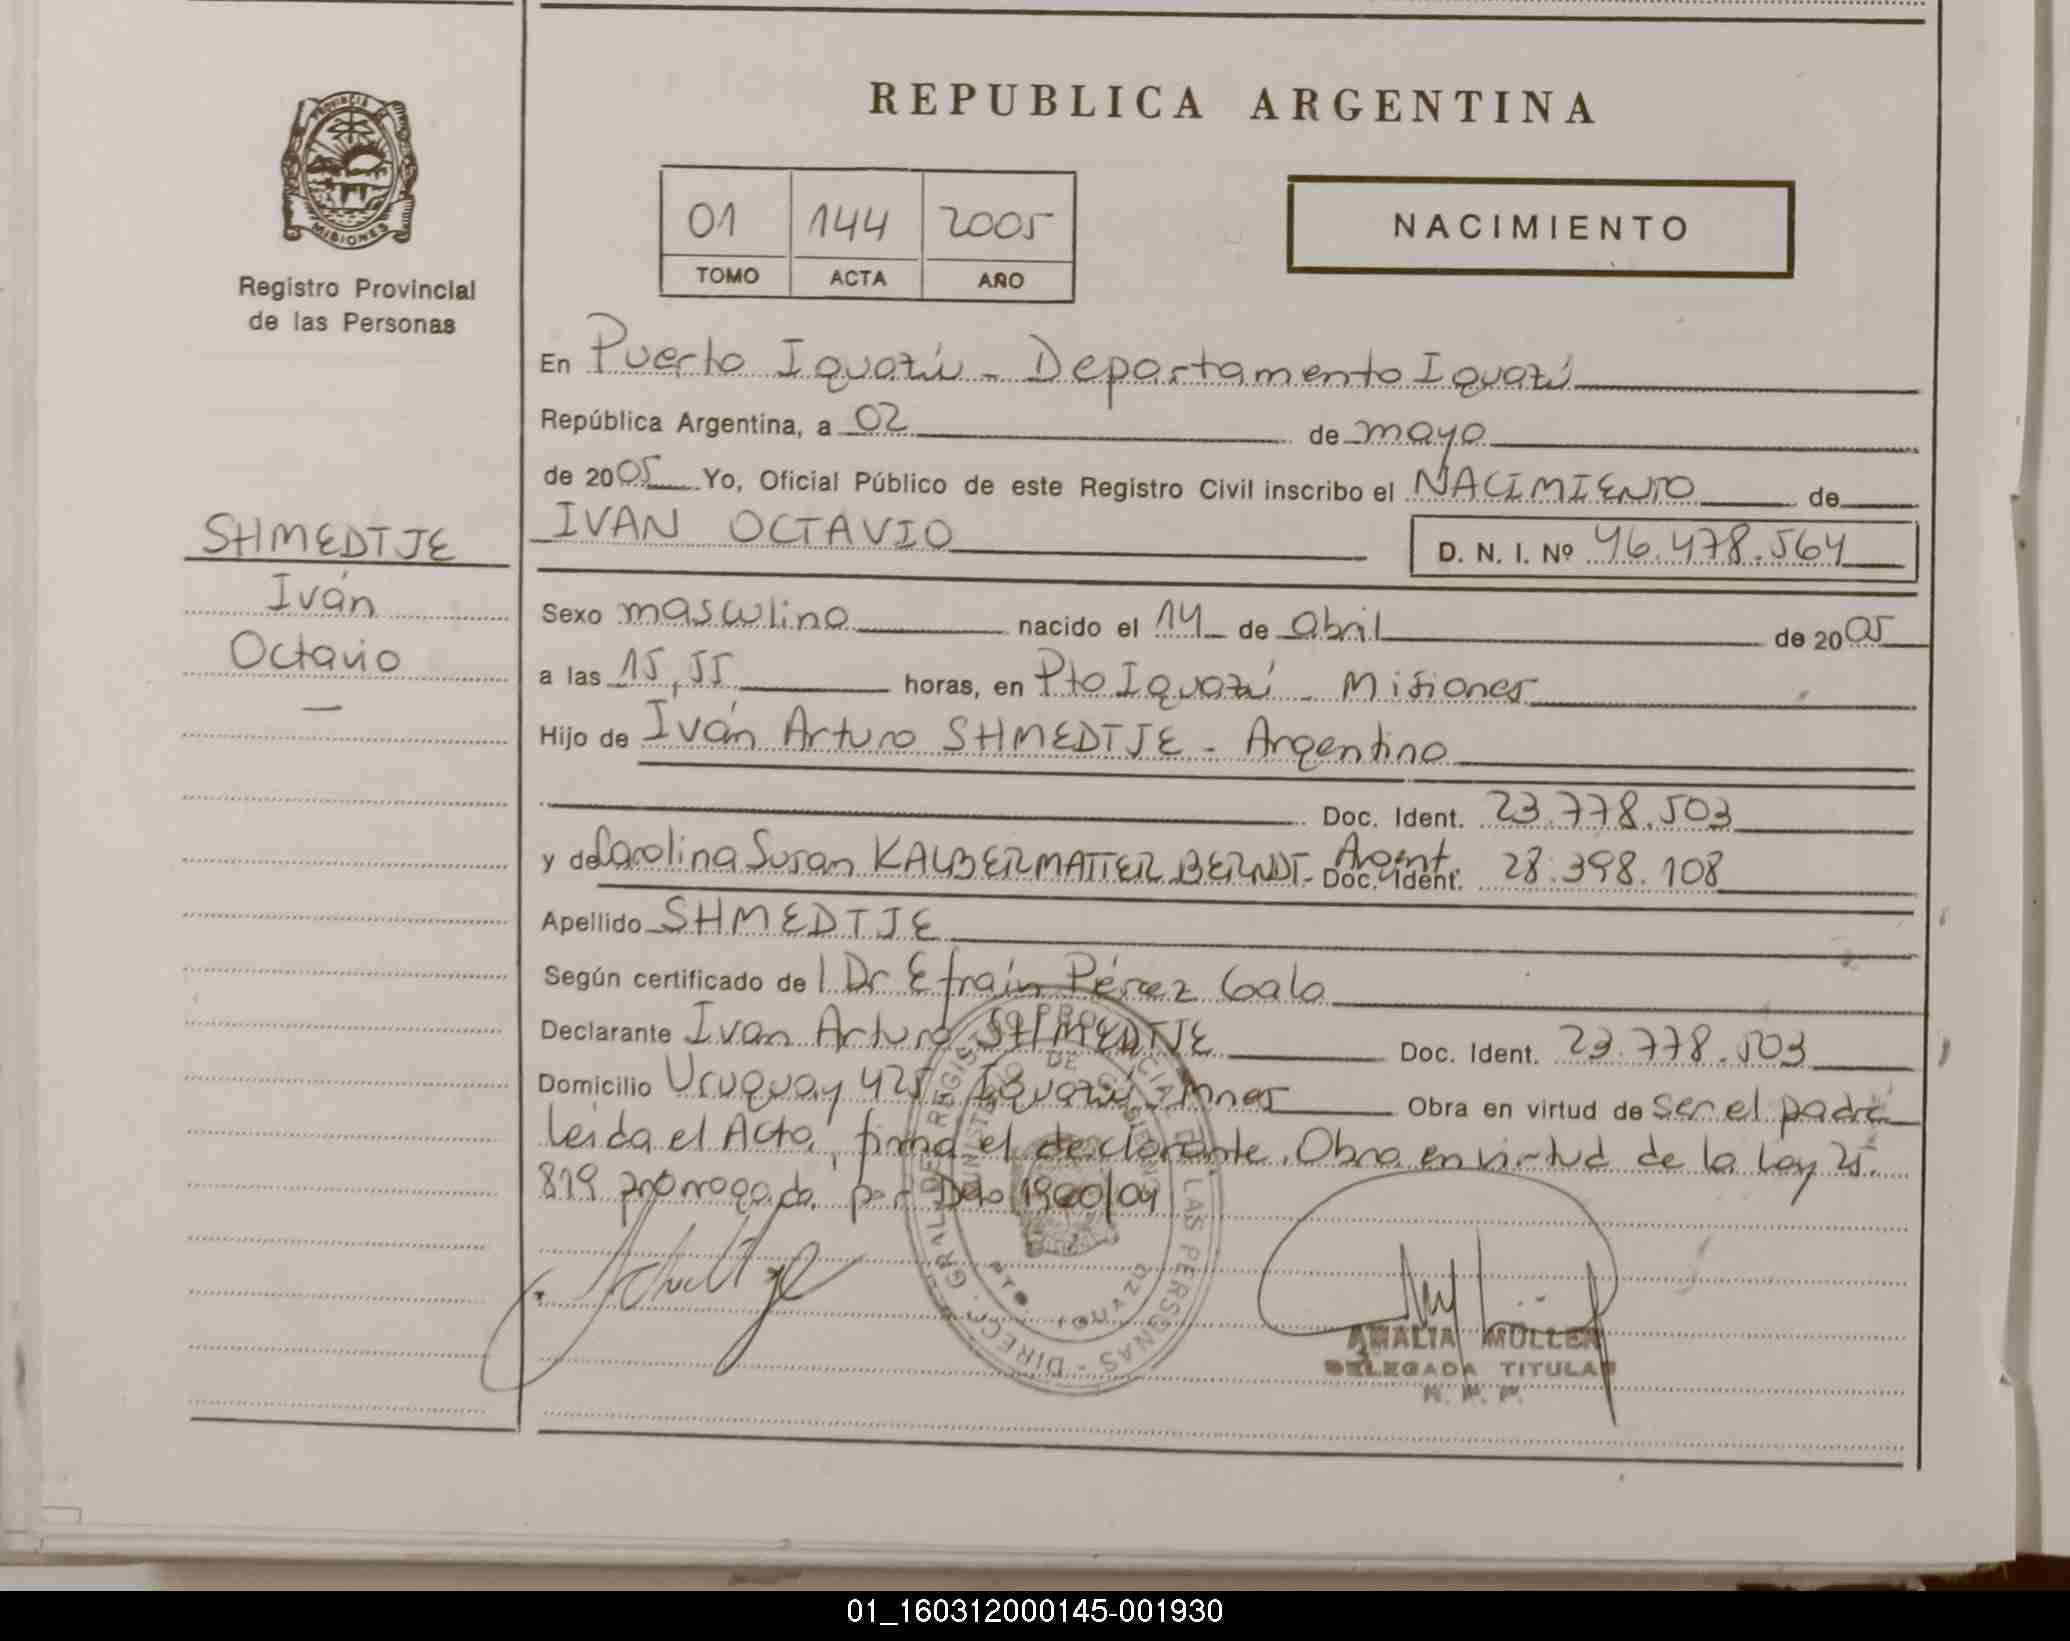 REPUBLICA ARGENTINA
PROVINCIA DE MISIONES
Registro Provincial
de las Personas
01 144 2005
TOMO ACTA AÑO
NACIMIENTO
En Puerto Iguazú - Departamento Iguazú
República Argentina, a 02 de mayo
de 2005 Yo, Oficial Público de este Registro Civil inscribo el NACIMIENTO de
IVAN OCTAVIO D. N. I. Nº 46.478.564
SHMEDTJE
Iván
Octavio
Sexo masculino nacido el 14 de abril de 2005
a las 15,55 horas, en Pto Iguazú - Misiones
Hijo de Iván Arturo SHMEDTJE - Argentino
Doc. Ident. 23.778.503
y de Carolina Susan KALBERMATTER BERNDT - Argent. Doc. Ident. 28.398.108
Apellido SHMEDTJE
Según certificado de l Dr Efraín Pérez Galo
Declarante Ivan Arturo SHMEDTJE Doc. Ident. 23.778.503
Domicilio Uruguay 425 Iguazú - Mnes Obra en virtud de ser el padre
Leída el Acta, firma el declarante. Obra en virtud de la Ley 25.
819 prorrogada por Dcto 1900/04
REGISTRO PROVINCIAL DE LAS PERSONAS - DIRECC. GRAL. DE
MINISTERIO DE GOBIERNO
PTO. IGUAZU
AMALIA MULLER
DELEGADA TITULAR
R. P. P.
01_160312000145-001930